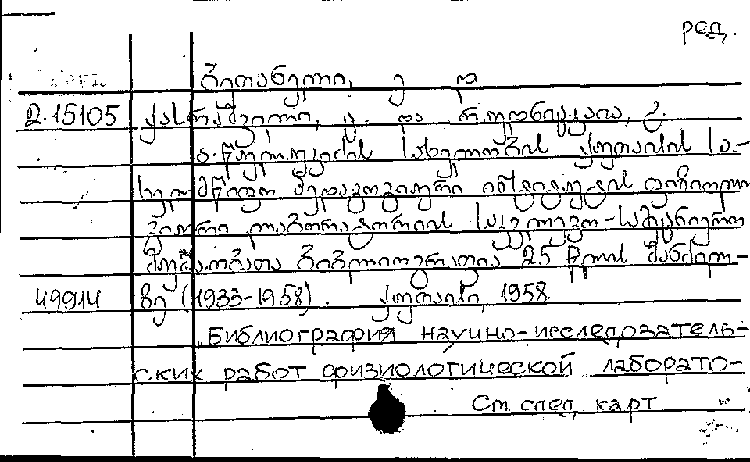 ред.
ჩეთანელი, ვ და
2.15105 ქასრაშვილი, ვ. და როდნიცკაია, გ.
ა. წულუკიძის სახელობის ქუთაისის სა-
ხელმწიფო პედაგოგიური ინსტიტუტის ფიზიოლო
გიური ლაბორატორიის საკვლევო-სამეცნიერო
შრომათა ბიბლიოგრაფია 25 წლის მანძილ-
49914 ზე (1933-1958). ქუთაისი, 1958.
Библиография научно-исследователь-
ских работ физиологической лаборато-
См. след. карт